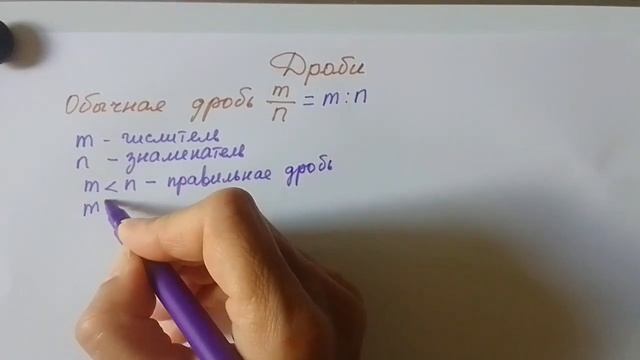 Дроби
Обычная дробь m/n = m:n
m - числитель
n - знаменатель
m < n - правильная дробь
m